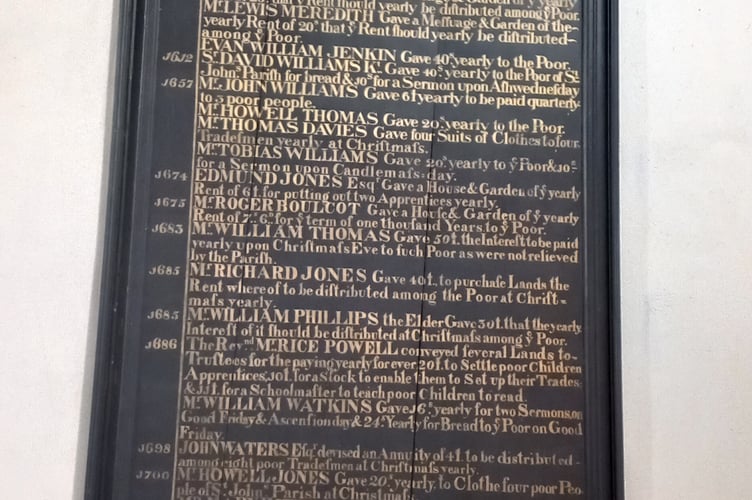 that ẏ Rent should yearly be distributed among ẏ Poor.
Mr. LEWIS MEREDITH Gave a Meſsuage & Garden of the
yearly Rent of 20s. that ẏ Rent ſhould yearly be diſtributed
among ẏ Poor.
EVAN WILLIAM JENKIN Gave 40s. yearly to the Poor.
1612 Sr. DAVID WILLIAMS Kt. Gave 40s. yearly to the Poor of St.
Johns. Pariſh for bread & 10s. for a Sermon upon Aſhwedneſday
1657 Mr. JOHN WILLIAMS Gave 6l yearly to be paid quarterly
to 3 poor people.
Mr. HOWELL THOMAS Gave 20s. yearly to the Poor.
Mr. THOMAS DAVIES Gave four Suits of Clothes to four
Tradeſmen yearly at Chriſtmaſs.
Mr. TOBIAS WILLIAMS Gave 20s. yearly to ẏ Poor & 10s.
for a Sermon upon Candlemaſs-day.
1674 EDMUND JONES Esqr. Gave a Houſe & Garden of ẏ yearly
Rent of 6l. for putting out two Apprentices yearly.
1675 Mr. ROGER BOULCOT Gave a Houſe & Garden of ẏ yearly
Rent of 7s. 6d. for ẏ term of one thouſand Years, to ẏ Poor.
1683 Mr. WILLIAM THOMAS Gave 50l. the Intereſt to be paid
yearly upon Chriſtmaſs Eve to ſuch Poor as were not relieved
by the Pariſh.
1685 Mr. RICHARD JONES Gave 40l. to purchaſe Lands the
Rent whereof to be diſtributed among the Poor at Chriſt=
maſs yearly.
1685 Mr. WILLIAM PHILLIPS the Elder Gave 30l. that the yearly
Intereſt of it ſhould be diſtributed at Chriſtmaſs among ẏ Poor.
1686 The Revnd. Mr. RICE POWELL conveyed ſeveral Lands to
Truſtees for the paying yearly for ever 20l. to Settle poor Children
Apprentices, 10l. for a ſtock to enable them to Set up their Trades
& 11l. for a Schoolmaſter to teach poor Children to read.
Mr. WILLIAM WATKINS Gave 16s. yearly for two Sermons, on
Good Friday & Aſcenſion day & 24s. Yearly for Bread to ẏ Poor on Good
Friday.
1698 JOHN WATERS Eſqr. deviſed an Annuity of 4l. to be diſtributed
among eight poor Tradeſmen at Chriſtmaſs yearly.
1700 Mr. HOWELL JONES Gave 20s. yearly, to Clothe four poor Peo
ple of St. Johns. Parish at Chriſtmaſs